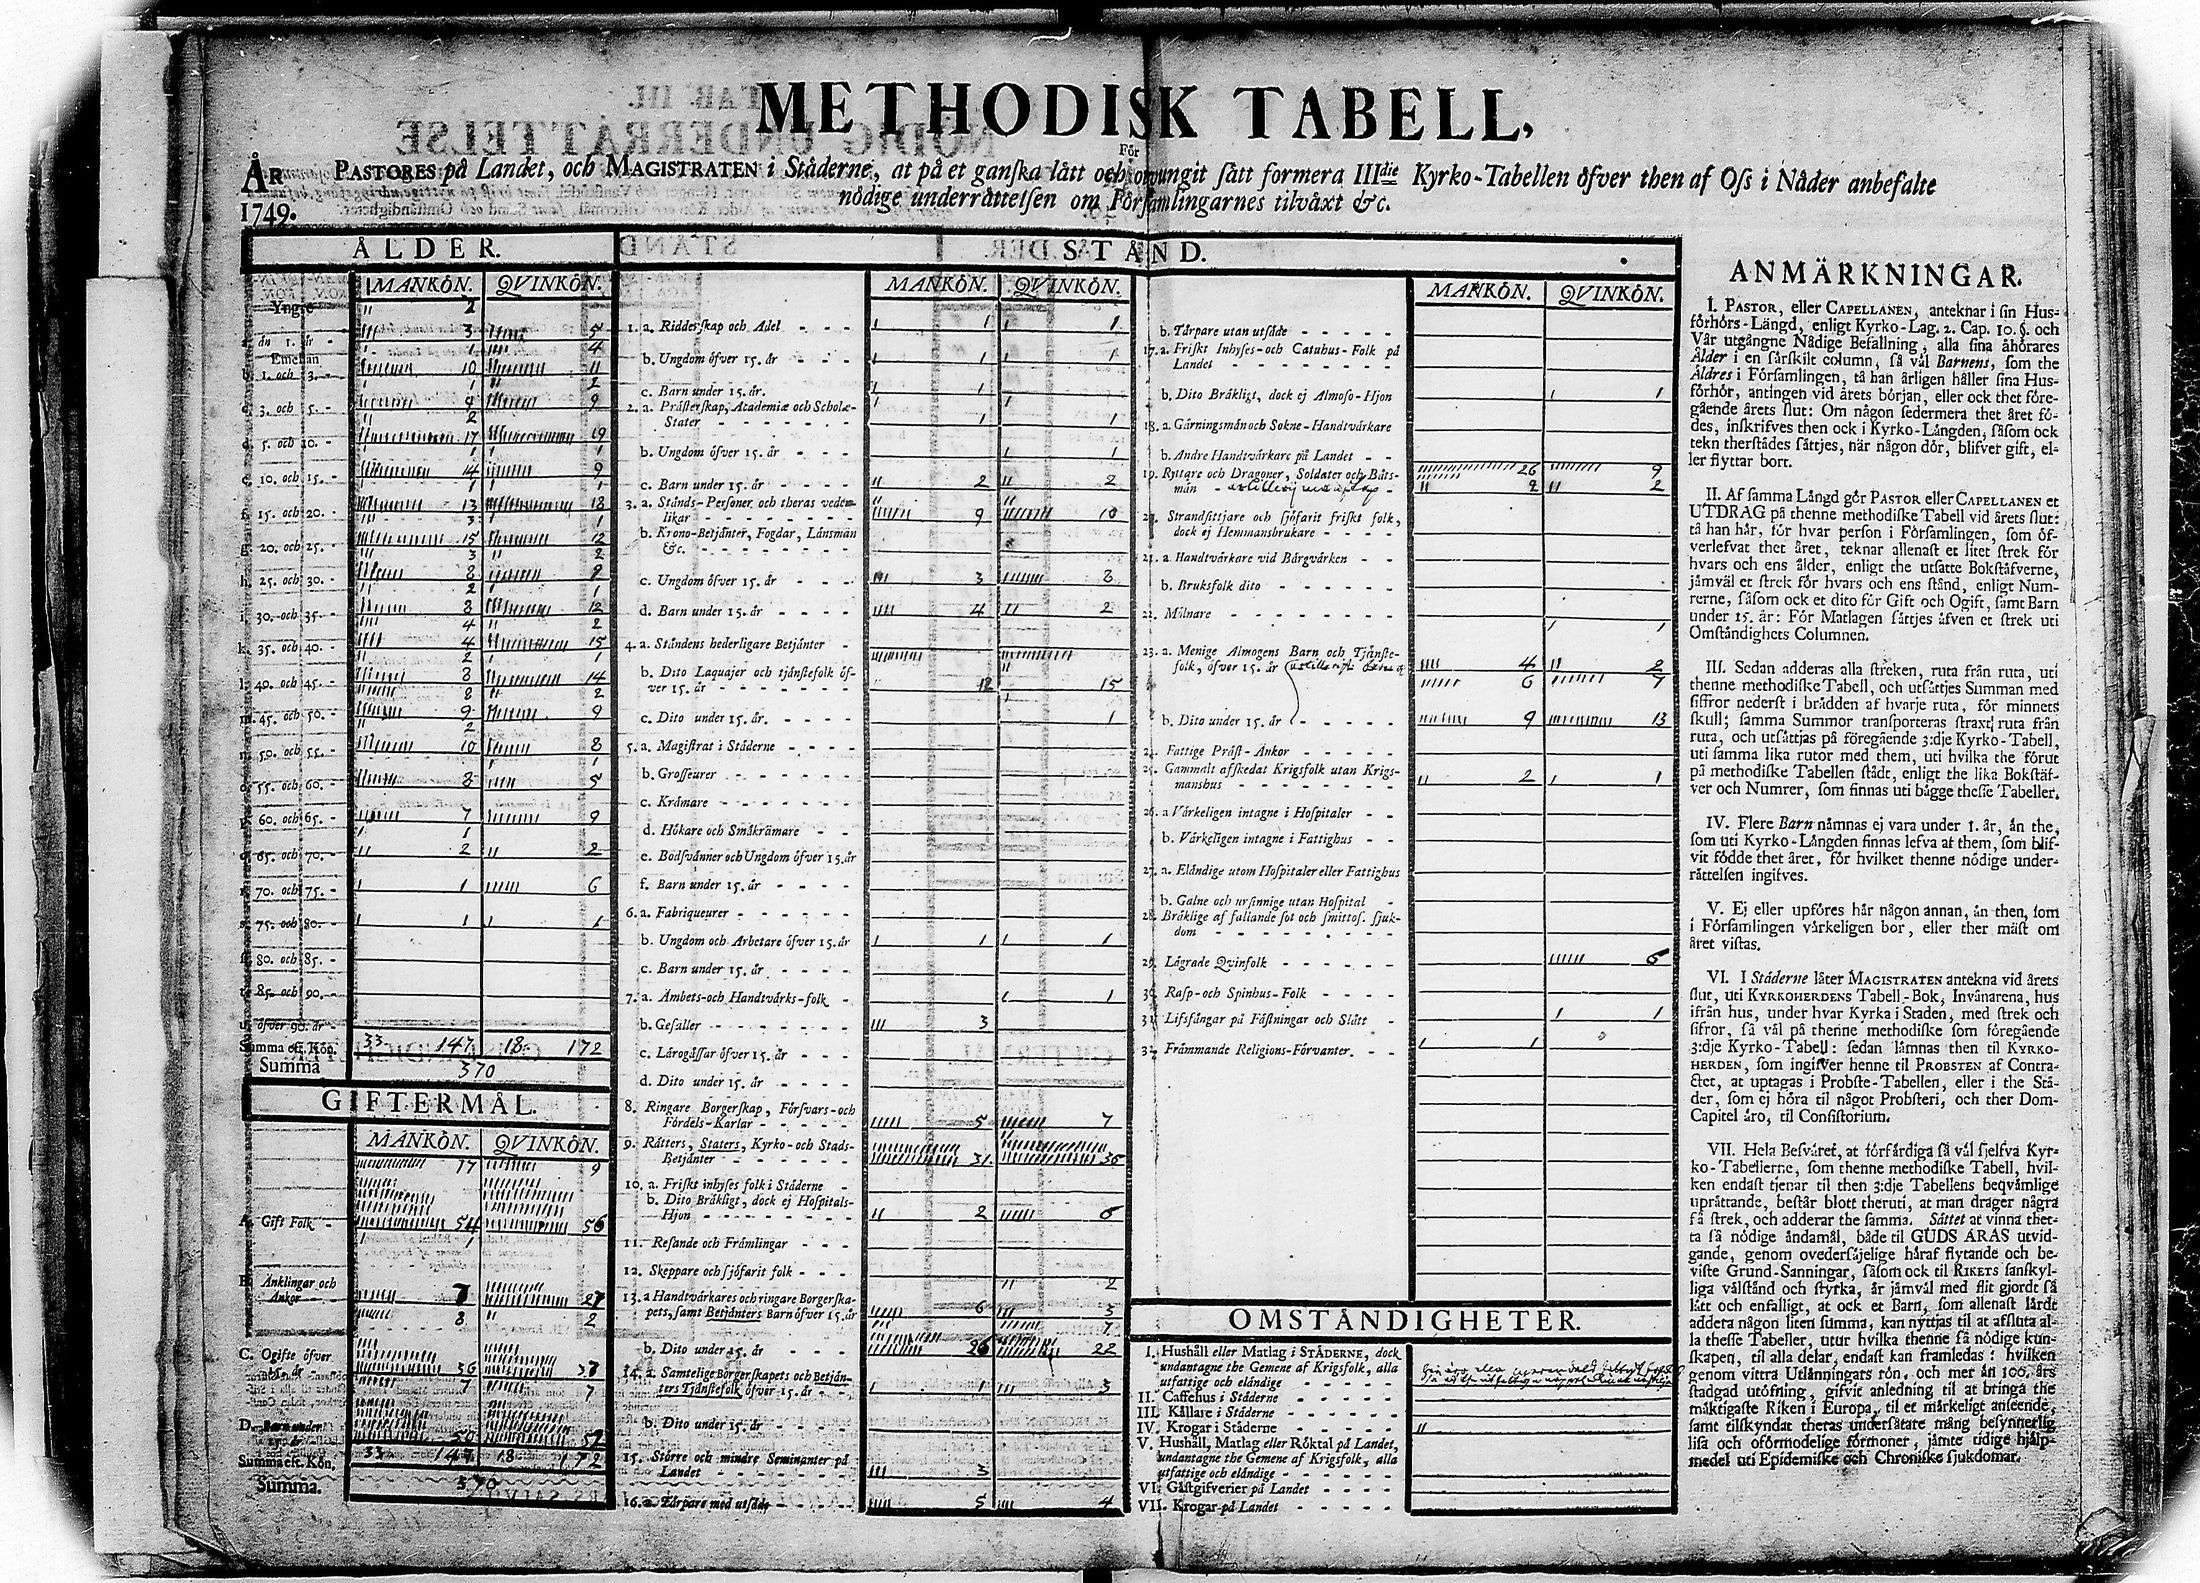 METHODISK TABELL,
För
ÅR PASTORES på Landet, och MAGISTRATEN i Städerne, at på et ganska lått och otvungit sått formera IIIdie Kyrko-Tabellen öfver then af Oss i Nåder anbefalte
1749. nödige underråttelsen om Församlingarnes tilväxt &c.
ÅLDER.
MANKÖN. QVINKÖN.
Yngre 2
a. än 1. år - 3 5
Emellan 1 4
b. 1. och 3. - 10 11
1 2
c. 3. och 5. - 9
2
d. 5. och 10. - 17 19
1 1
e. 10. och 15. - 14 9
1 1
f. 15. och 20. - 13 18
3 1
g. 20. och 25. - 15 12
3 2
h. 25. och 30. - 8
2 1
i. 30. och 35. - 8 12
4 2
k. 35. och 40. - 4 15
2 1
l. 40. och 45. - 14
8 2
m. 45. och 50. - 9 9
2
n. 50. och 55. - 10 8
1
o. 55. och 60. - 8 5
p. 60. och 65. - 7 9
1
q. 65. och 70. - 2 2
r. 70. och 75. - 1 6
s. 75. och 80. - 1 1
80. och 85. -
85. och 90. -
u. öfver 90. år -
Summa eft. Kön. 33 147 18 172
Summa 370
GIFTERMÅL.
MANKÖN. QVINKÖN.
17 9
A. Gift Folk - 54 56
1
B. Änklingar och
Änkor 7 27
8 2
C. Ogifte öfver
15. år 36 37
7 7
D. Barn under
15. år 50 52
Summa eft. Kön. 33 147 18 172
Summa. 370
STÅND.
MANKÖN. QVINKÖN.
1. a. Ridderskap och Adel - - - 1 1
b. Ungdom öfver 15. år - - - 1 1
c. Barn under 15. år. 1
2. a. Prästerskap, Academiæ och Scholæ-
Stater - - - - - - - 1 1
b. Ungdom öfver 15. år - - - 1
c. Barn under 15. år - - - 2 2
3. a. Stånds-Personer och theras veder-
likar - - - - - - - 9 10
b. Krono-Betjänter, Fogdar, Länsmän
&c. - - - - - - - -
c. Ungdom öfver 15. år - - - 3 8
d. Barn under 15. år - - - - 4 2
4. a. Ståndens hederligare Betjänter -
b. Dito Laquajer och tjänstefolk öf-
ver 15. år - - - - - - - 12 15
c. Dito under 15. år. - - - - 1
5. a. Magistrat i Städerne - - - -
b. Grosseurer - - - - - - -
c. Krämare - - - - - - -
d. Hökare och Småkrämare - -
e. Bodsvänner och Ungdom öfver 15. år
f. Barn under 15. år - - - -
6. a. Fabriqueurer - - - - - -
b. Ungdom och Arbetare öfver 15. år 1 1
c. Barn under 15. år - - - -
7. a. Ämbets-och Handtvärks-folk - 1
b. Gesäller - - - - - - - 3
c. Lårogåssar öfver 15. år - - -
d. Dito under 15. år - - - -
8. Ringare Borgerskap, Försvars-och
Fördels-Karlar - - - - - 5 7
9. Råtters, Staters, Kyrko-och Stads-
Betjänter - - - - - - 31 36
10. a. Friskt inhyses folk i Städerne -
b. Dito Bråkligt, dock ej Hospitals-
Hjon - - - - - - - - 2 6
11. Resande och Främlingar - - -
12. Skeppare och sjöfarit folk - - - 2
13. a Handtvärkares och ringare Borgerska-
pets, samt Betjänters Barn öfver 15. år 6 3
7
b. Dito under 15. år - - - - 26 22
14. a. Samtelige Borgerskapets och Betjän-
ters Tjänstefolk öfver 15. år - - 1 3
b. Dito under 15. år - - - -
15. Större och mindre Seminanter på
Landet - - - - - - - 3
16. a. Torpare med utsäde - - - 5 4
MANKÖN. QVINKÖN.
b. Torpare utan utsäde - - - - -
17. a. Friskt Inhyses-och Catuhus-Folk på
Landet - - - - - - - -
b. Dito Bråkligt, dock ej Almoso-Hjon 1
18. a. Gärningsmän och Sokne-Handtvärkare
b. Andre Handtvärkare på Landet - -
19. Ryttare och Dragoner, Soldater och Båts- 26 9
män - artilleri manskap - 2 2
20. Strandsittjare och sjöfarit friskt folk,
dock ej Hemmansbrukare - - - -
21. a. Handtvärkare vid Bärgvärken - -
b. Bruksfolk dito - - - - - -
22. Mölnare - - - - - - - -
1
23. a. Menige Almogens Barn och Tjänste-
folk, öfver 15. år 4 2
6 7
b. Dito under 15. år - - - - - 9 13
24. Fattige Präst-Änkor - - - - -
25. Gammalt afskedat Krigsfolk utan Krigs-
manshus - - - - - - - - 2 1
26. a Värkeligen intagne i Hospitaler - -
b. Värkeligen intagne i Fattighus - -
27. a. Eländige utom Hospitaler eller Fattighus
b. Galne och ursinnige utan Hospital -
28. Bråklige af fallande sot och smittos. sjuk-
dom - - - - - - - - -
29. Lågrade Qvinfolk - - - - - - 6
30. Rasp-och Spinhus-Folk - - - -
31. Lifsfångar på Fästningar och Slått - - 1
32. Främmande Religions-Förvanter. - - 1
OMSTÅNDIGHETER.
I. Hushåll eller Matlag i STÄDERNE, dock
undantagne the Gemene af Krigsfolk, alla
utfattige och eländige - - - - -
II. Caffehus i Städerne - - - - -
III. Källare i Städerne - - - - -
IV. Krogar i Städerne - - - - -
V. Hushåll, Matlag eller Röktal på Landet,
undantagne the Gemene af Krigsfolk, alla
utfattige och eländige - - - - -
VI. Gästgifverier på Landet - - - - -
VII. Krogar på Landet - - - - -
ANMÄRKNINGAR.
I. PASTOR, eller CAPELLANEN, anteknar i sin Hus-
förhörs-Längd, enligt Kyrko-Lag. 2. Cap. 10. §. och
Vår utgångne Nådige Befallning, alla sina åhörares
Ålder i en särskilt column, så väl Barnens, som the
Äldres i Församlingen, tå han årligen håller sina Hus-
förhör, antingen vid årets början, eller ock thet före-
gående årets slut: Om någon sedermera thet året fö-
des, inskrifves then ock i Kyrko-Längden, såsom ock
tekn therstådes såttjes, när någon dör, blifver gift, el-
ler flyttar bort.
II. Af samma Långd gör PASTOR eller CAPELLANEN et
UTDRAG på thenne methodiske Tabell vid årets slut:
tå han hår, för hvar person i Församlingen, som öf-
verlefvat thet året, teknar allenast et litet strek för
hvars och ens ålder, enligt the utsatte Bokstäfverne,
jämväl et strek för hvars och ens stånd, enligt Num-
rerne, såsom ock et dito för Gift och Ogift, samt Barn
under 15. år: För Matlagen såttjes åfven et strek uti
Omständighets Columnen.
III. Sedan adderas alla streken, ruta från ruta, uti
thenne methodiske Tabell, och utsåttjes Summan med
siffror nederst i brädden af hvarje ruta, för minnets
skull; samma Summor transporteras straxt ruta från
ruta, och utsåttjas på föregående 3:dje Kyrko-Tabell,
uti samma lika rutor med them, uti hvilka the förut
på methodiske Tabellen stådt, enligt the lika Bokståf-
ver och Numrer, som finnas uti bägge thesse Tabeller.
IV. Flere Barn nämnas ej vara under 1. år, än the,
som uti Kyrko-Längden finnas lefva af them, som blif-
vit födde thet året, för hvilket thenne nödige under-
råttelsen ingifves.
V. Ej eller upföres hår någon annan, än then, som
i Församlingen vårkeligen bor, eller ther måst om
året vistas.
VI. I Städerne låter MAGISTRATEN antekna vid årets
slut, uti KYRKOHERDENS Tabell-Bok, Invånarena, hus
ifrån hus, under hvar Kyrka i Staden, med strek och
sifror, så väl på thenne methodiske som föregående
3:dje Kyrko-Tabell: sedan lämnas then til KYRKO-
HERDEN, som ingifver henne til PROBSTEN af Contra-
ctet, at uptagas i Probste-Tabellen, eller i the Stä-
der, som ej höra til något Probsteri, och ther Dom-
Capitel äro, til Consistorium.
VII. Hela Besväret, at förfärdiga så väl sjelfva Kyr-
ko-Tabellerne, som thenne methodiske Tabell, hvil-
ken endast tjenar til then 3:dje Tabellens beqvämlige
uprättande, består blott theruti, at man drager några
få strek, och adderar the samma. Såttet at vinna thet-
ta så nödige åndamål, både til GUDS ÄRAS utvid-
gande, genom ovedersäjelige håraf flytande och be-
viste Grund-Sanningar, såsom ock til RIKETS sanskyl-
liga välstånd och styrka, är jämväl med flit gjordt så
lätt och enfalligt, at ock et Barn, som allenast lärdt
addera någon liten summa, kan nyttjas til at afsluta al-
la thesse Tabeller, utur hvilka thenne så nödige kun-
skapen, til alla delar, endast kan framledas: hvilken
genom vittra Utlånningars rön, och mer än 100. års
stadgad utöfning, gifvit anledning til at bringa the
mäktigaste Riken i Europa, til et mårkeligt anseende,
samt tilskyndat theras undersåtare mång besynnerlig
lisa och oförmodelige förmoner, jämte tidige hjålp-
medel uti Epidemiske och Chroniske sjukdomar.